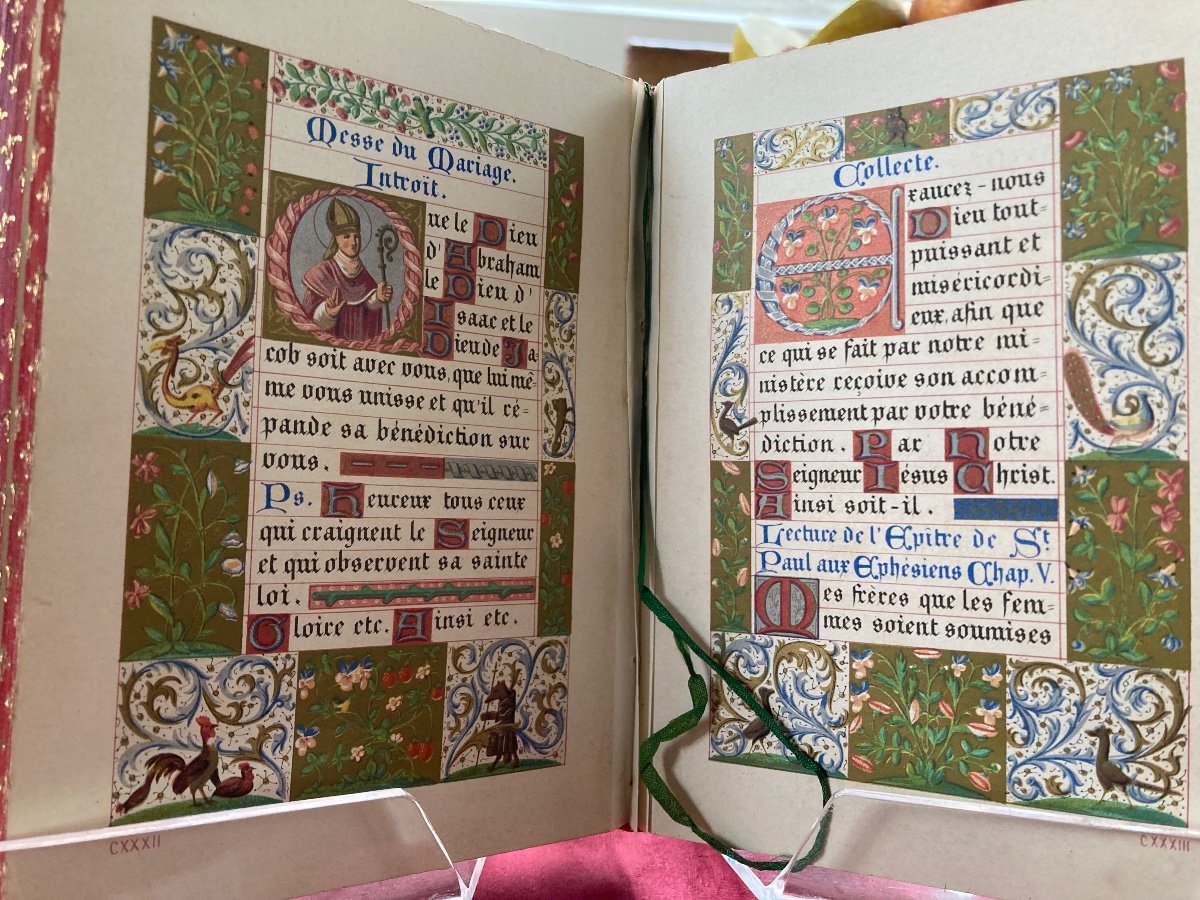 Messe du Mariage.
Introït.
Que le Dieu
d'Abraham
le Dieu d'
Isaac et le
Dieu de Ja
cob soit avec vous, que lui mê-
me vous unisse et qu'il ré-
pande sa bénédiction sur
vous.
Ps. Heureux tous ceux
qui craignent le Seigneur
et qui observent sa sainte
loi.
Gloire etc. Ainsi etc.
CXXXII
Collecte.
Exaucez-nous
Dieu tout-
puissant et
miséricordi-
eux, afin que
ce qui se fait par notre mi-
nistère reçoive son accom-
plissement par votre béné-
diction. Par Notre
Seigneur Iésus Christ.
Ainsi soit-il.
Lecture de l'Epitre de St.
Paul aux Ephésiens Chap. V.
Mes frères que les fem-
mes soient soumises
CXXXIII